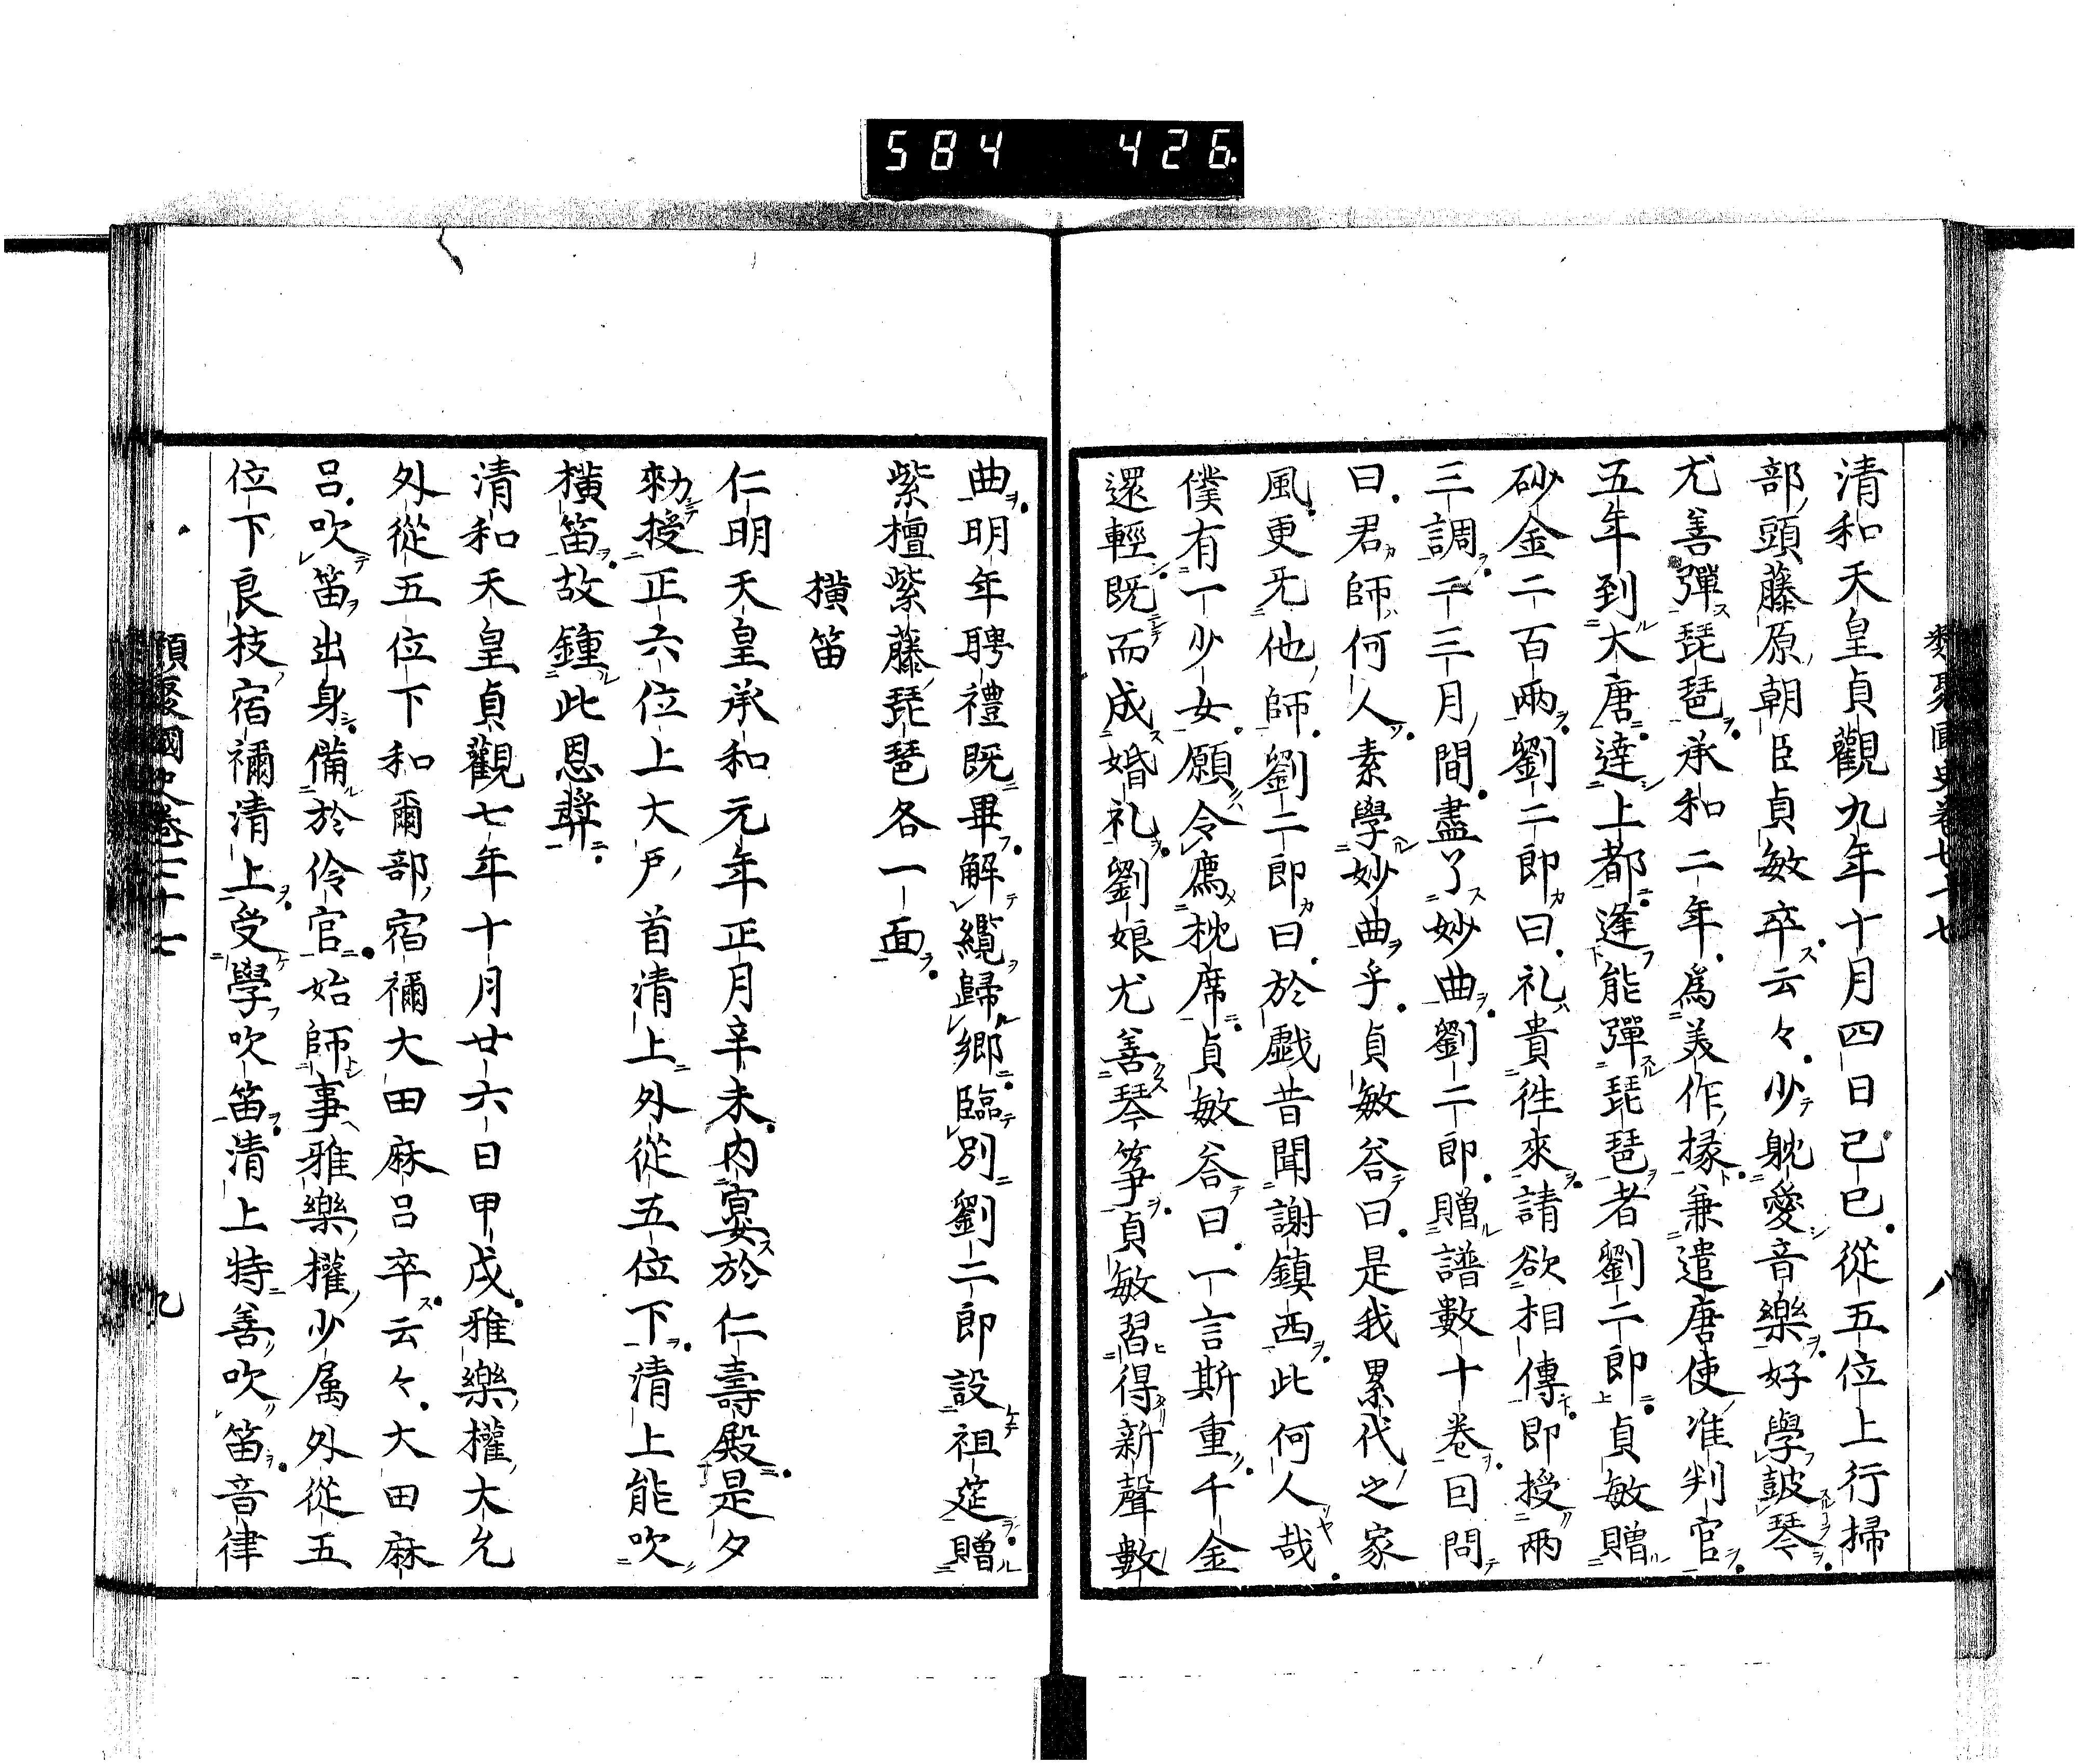 584 426
類聚國史卷七十七 八
清和天皇貞觀九年十月四日己巳從五位上行掃
部頭藤原朝臣貞敏卒云々少躭愛音樂好學鼓琴
尤善彈琵琶承和二年爲美作掾兼遣唐使准判官
五年到大唐達上都逢能彈琵琶者劉二郎貞敏贈
砂金二百兩劉二郎曰礼貴徃來請欲相傳即授兩
三調二三月間盡了妙曲劉二郎贈譜數十卷因問
曰君師何人素學妙曲乎貞敏答曰是我累代之家
風更旡他師劉二郎曰於戯昔聞謝鎮西此何人哉
僕有一少女願令薦枕席貞敏答曰一言斯重千金
還輕既而成婚礼劉娘尤善琴箏貞敏習得新聲數
曲明年聘禮既畢解纜歸鄉臨別劉二郎設祖筵贈
紫檀紫藤琵琶各一面
橫笛
仁明天皇承和元年正月辛未內宴於仁壽殿是夕
勑授正六位上大戶首清上外從五位下清上能吹
橫笛故鍾此恩奬
清和天皇貞觀七年十月廿六日甲戌雅樂權大允
外從五位下和爾部宿禰大田麻呂卒云々大田麻
呂吹笛出身備於伶官始師事雅樂權少属外從五
位下良枝宿禰清上受學吹笛清上特善吹笛音律
類聚國史卷七十七 九